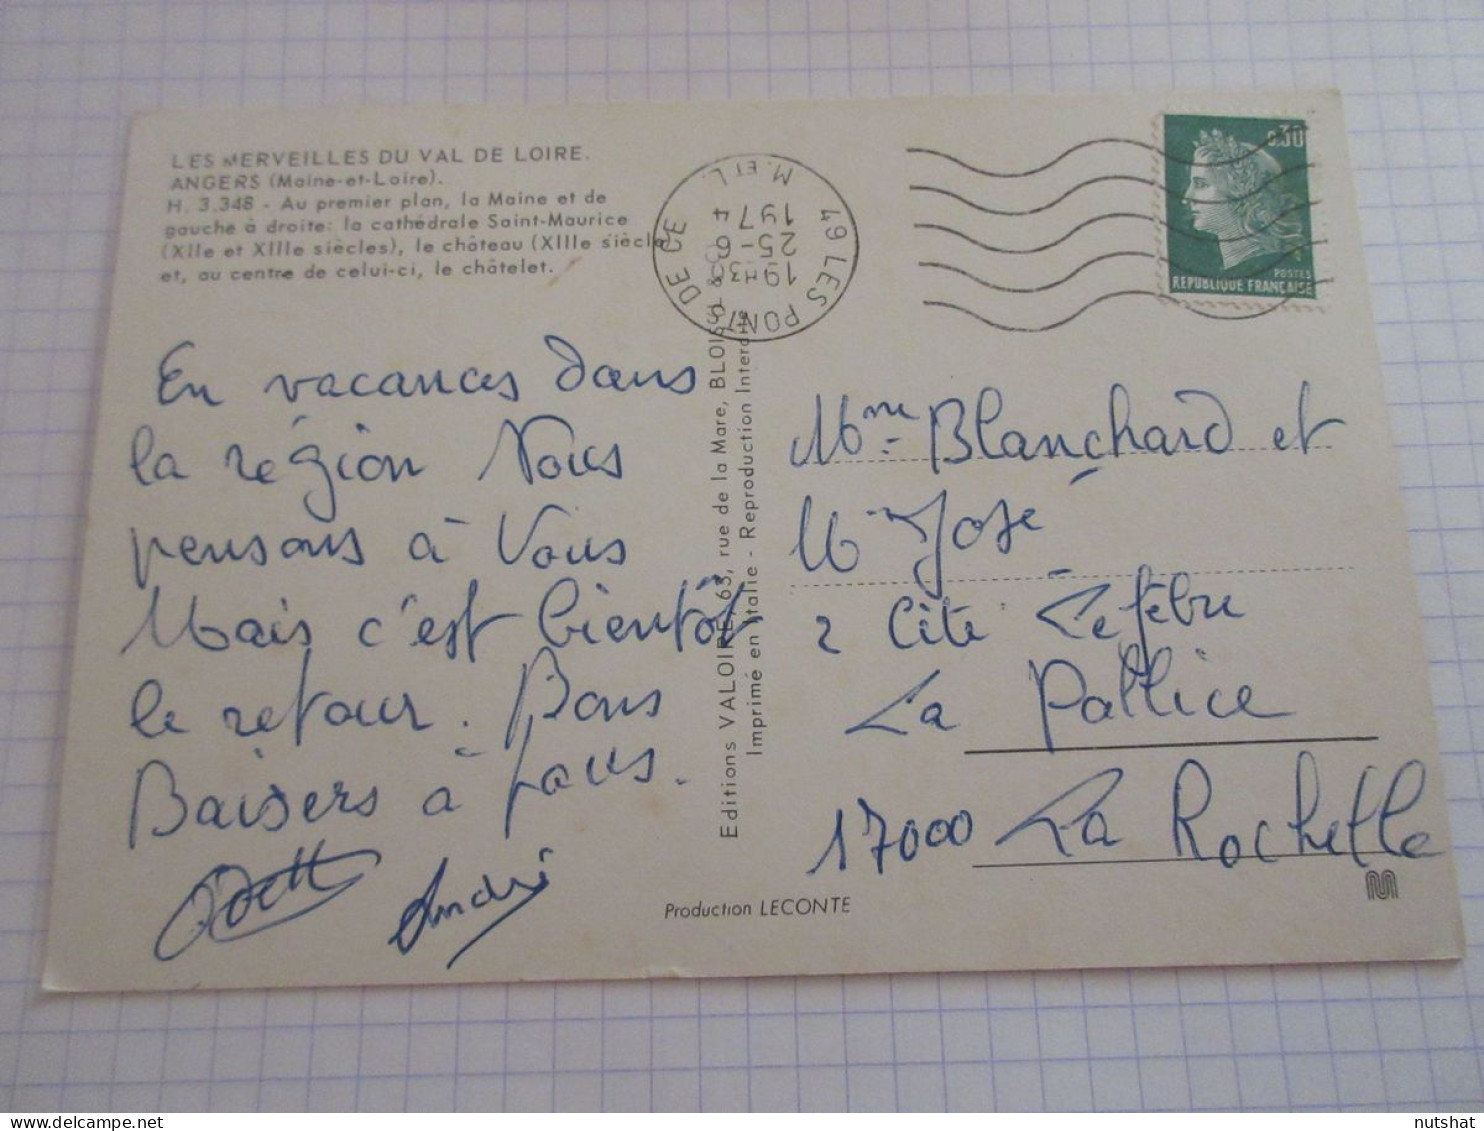 LES MERVEILLES DU VAL DE LOIRE.
ANGERS (Maine-et-Loire).
H. 3.348 - Au premier plan, la Maine et de
gauche à droite: la cathédrale Saint-Maurice
(XIIe et XIIIe siècles), le château (XIIIe siècle)
et, au centre de celui-ci, le châtelet.
49 LES PONTS DE CE
M. ET L.
19H3
25-6
1974
0.30
POSTES
REPUBLIQUE FRANÇAISE
En vacances dans
la région Nous
pensons à Vous
Mais c'est bientôt
le retour. Bons
Baisers à tous.
Odette
André
Editions VALOIRE, 63, rue de la Mare, BLOIS
Imprimé en Italie - Reproduction Interdite
Mme Blanchard et
Mr José
2 Cité Lefèbre
La Pallice
17000 La Rochelle
Production LECONTE
nutshat